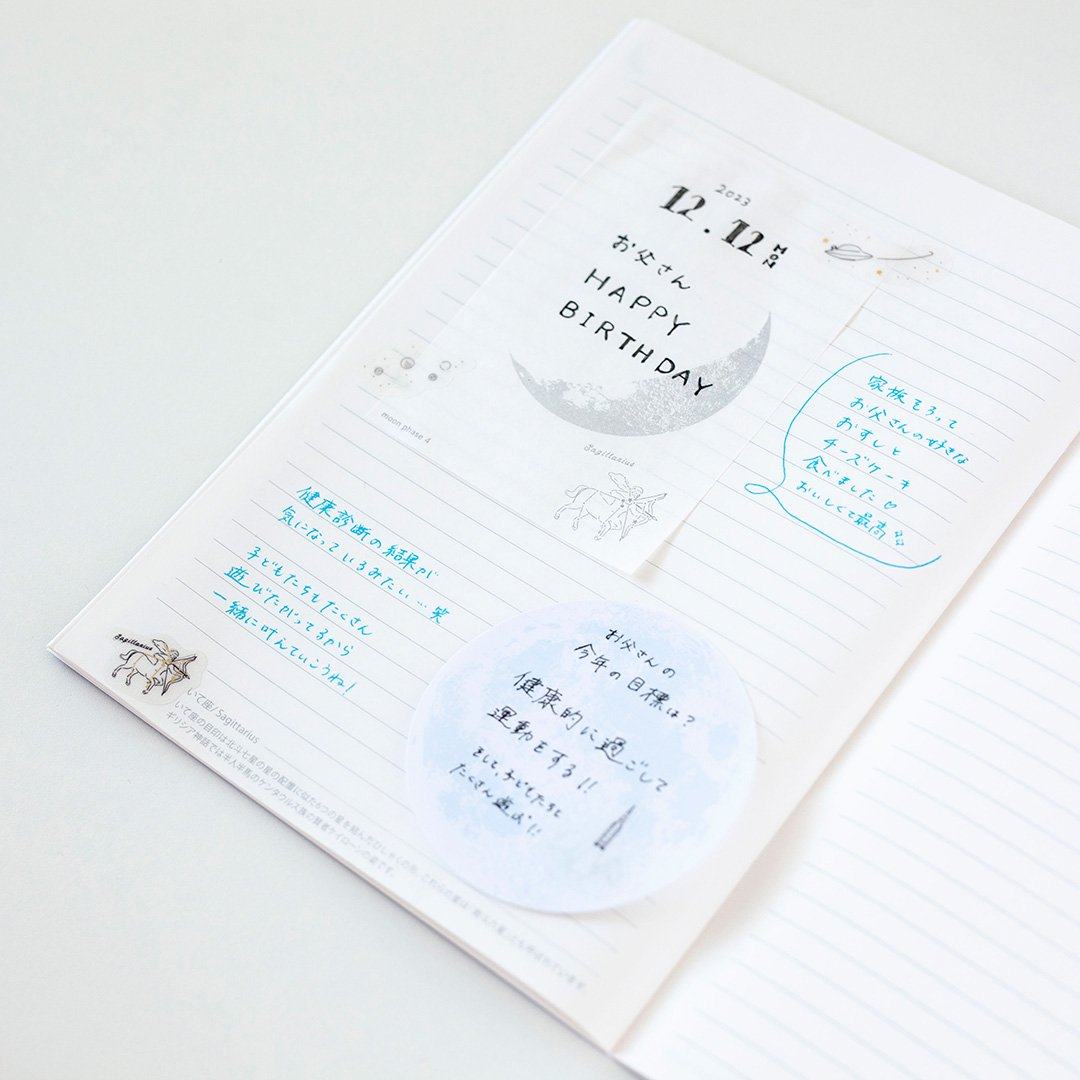 2023
12.12 MON
お父さん
HAPPY
BIRTHDAY
moon phase 4
Sagittarius
家族そろって
お父さんの好きな
おすしと
チーズケーキ
食べました♡
おいしくて最高
健康診断の結果が
気になっているみたい…笑
子どもたちもたくさん
遊びたがってるから
一緒に叶えていこうね!
お父さんの
今年の目標は?
健康的に過ごして
運動をする!!
そして、子どもたちと
たくさん遊ぶ!!
Sagittarius
いて座/Sagittarius
いて座の目印は北斗七星の星の配置に似た6つの星を結んだひしゃくの形。これらの星は「南斗六星」とも呼ばれています
ギリシア神話では半人半馬のケンタウルス族の賢者ケイローンの姿です。